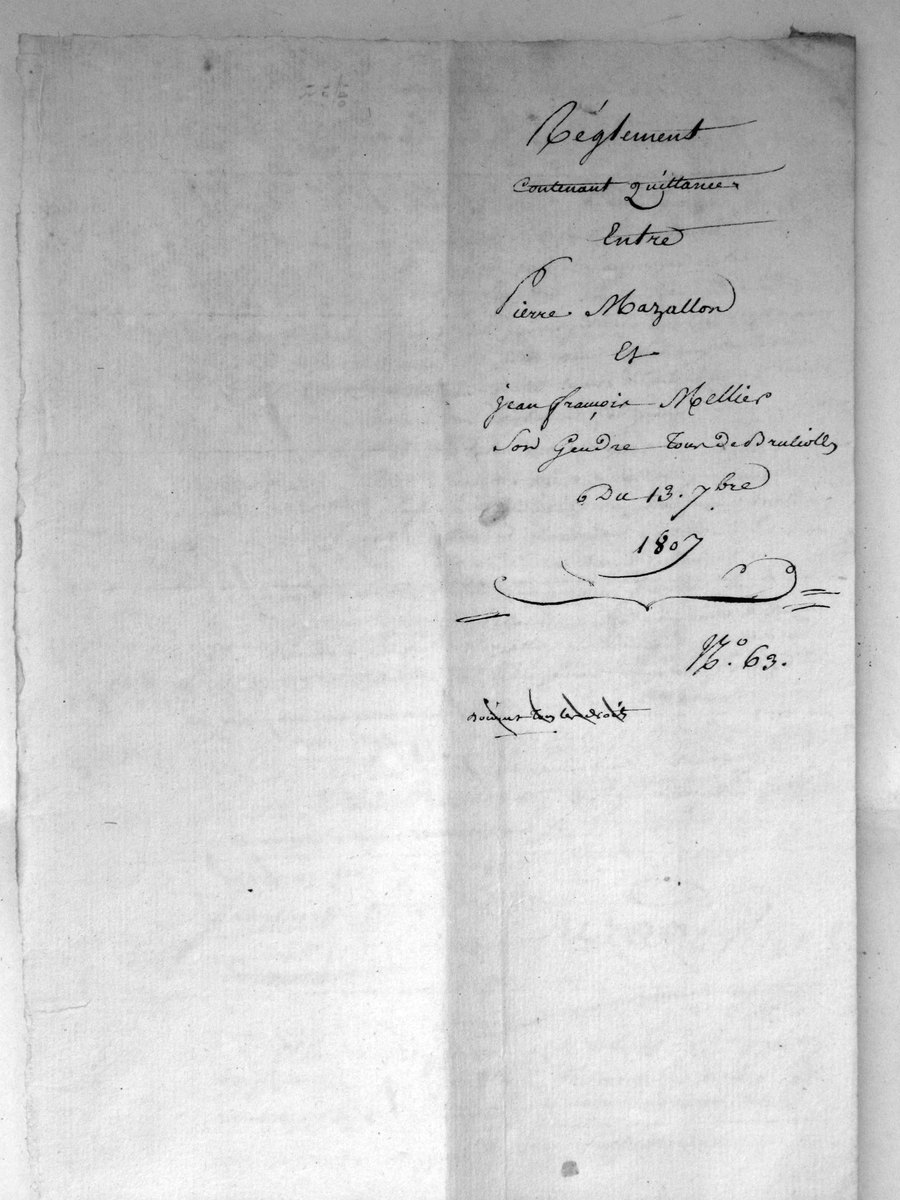 Réglement
Contenant Quittance
Entre
Pierre Mazallon
Et
jean françois Mellier
Son Gendre Tous de Brulioles
Du 13. 7bre
1807
No. 63.
doivent tous les droits